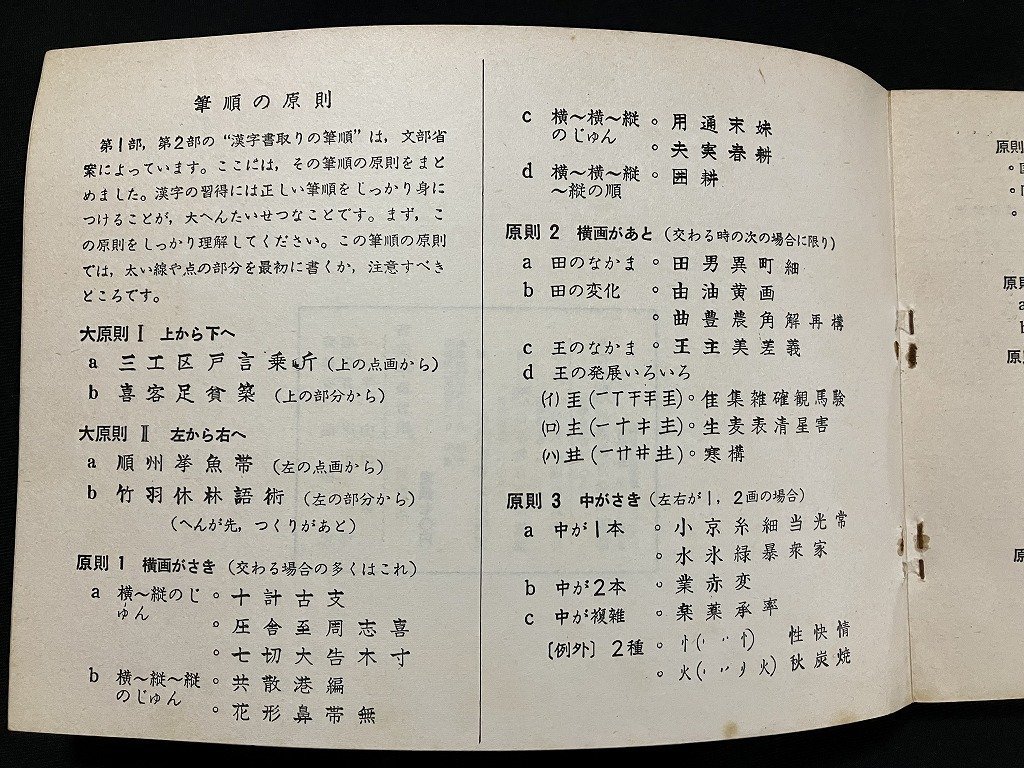 筆順の原則
第1部，第2部の“漢字書取りの筆順”は，文部省
案によっています。ここには，その筆順の原則をまと
めました。漢字の習得には正しい筆順をじっかり身に
つけることが，大へんたいせつなことです。まず，こ
の原則をしっかり理解してください。この筆順の原則
では，太い線や点の部分を最初に書くか，注意すべき
ところです。
大原則Ⅰ 上から下へ
a 三工区戸言乗斤（上の点画から）
b 喜客足貧築（上の部分から）
大原則Ⅱ 左から右へ
a 順州挙魚帯（左の点画から）
b 竹羽休林語術（左の部分から）
（へんが先，つくりがあと）
原則1 横画がさき（交わる場合の多くはこれ）
a 横〜縦のじゅん 。十計古支
。圧舎至周志喜
。七切大告木寸
b 横〜縦〜縦のじゅん 。共散港編
。花形鼻帯無
c 横〜横〜縦のじゅん 。用通末妹
。夫実春耕
d 横〜横〜縦〜縦の順 。囲耕
原則2 横画があと（交わる時の次の場合に限り）
a 田のなかま 。田男異町細
b 田の変化 。由油黄画
。曲豊農角解再構
c 王のなかま 。王主美差義
d 王の発展いろいろ
(イ) 。隹集雑確観馬験
(ロ) 。生麦表清星害
(ハ) 。寒構
原則3 中がさき（左右が1，2画の場合）
a 中が1本 。小京糸細当光常
。水氷緑暴衆家
b 中が2本 。業赤変
c 中が複雑 。楽薬承率
〔例外〕2種 。忄 性快情
。火 秋炭焼
原則
原則
a
b
原則
原則